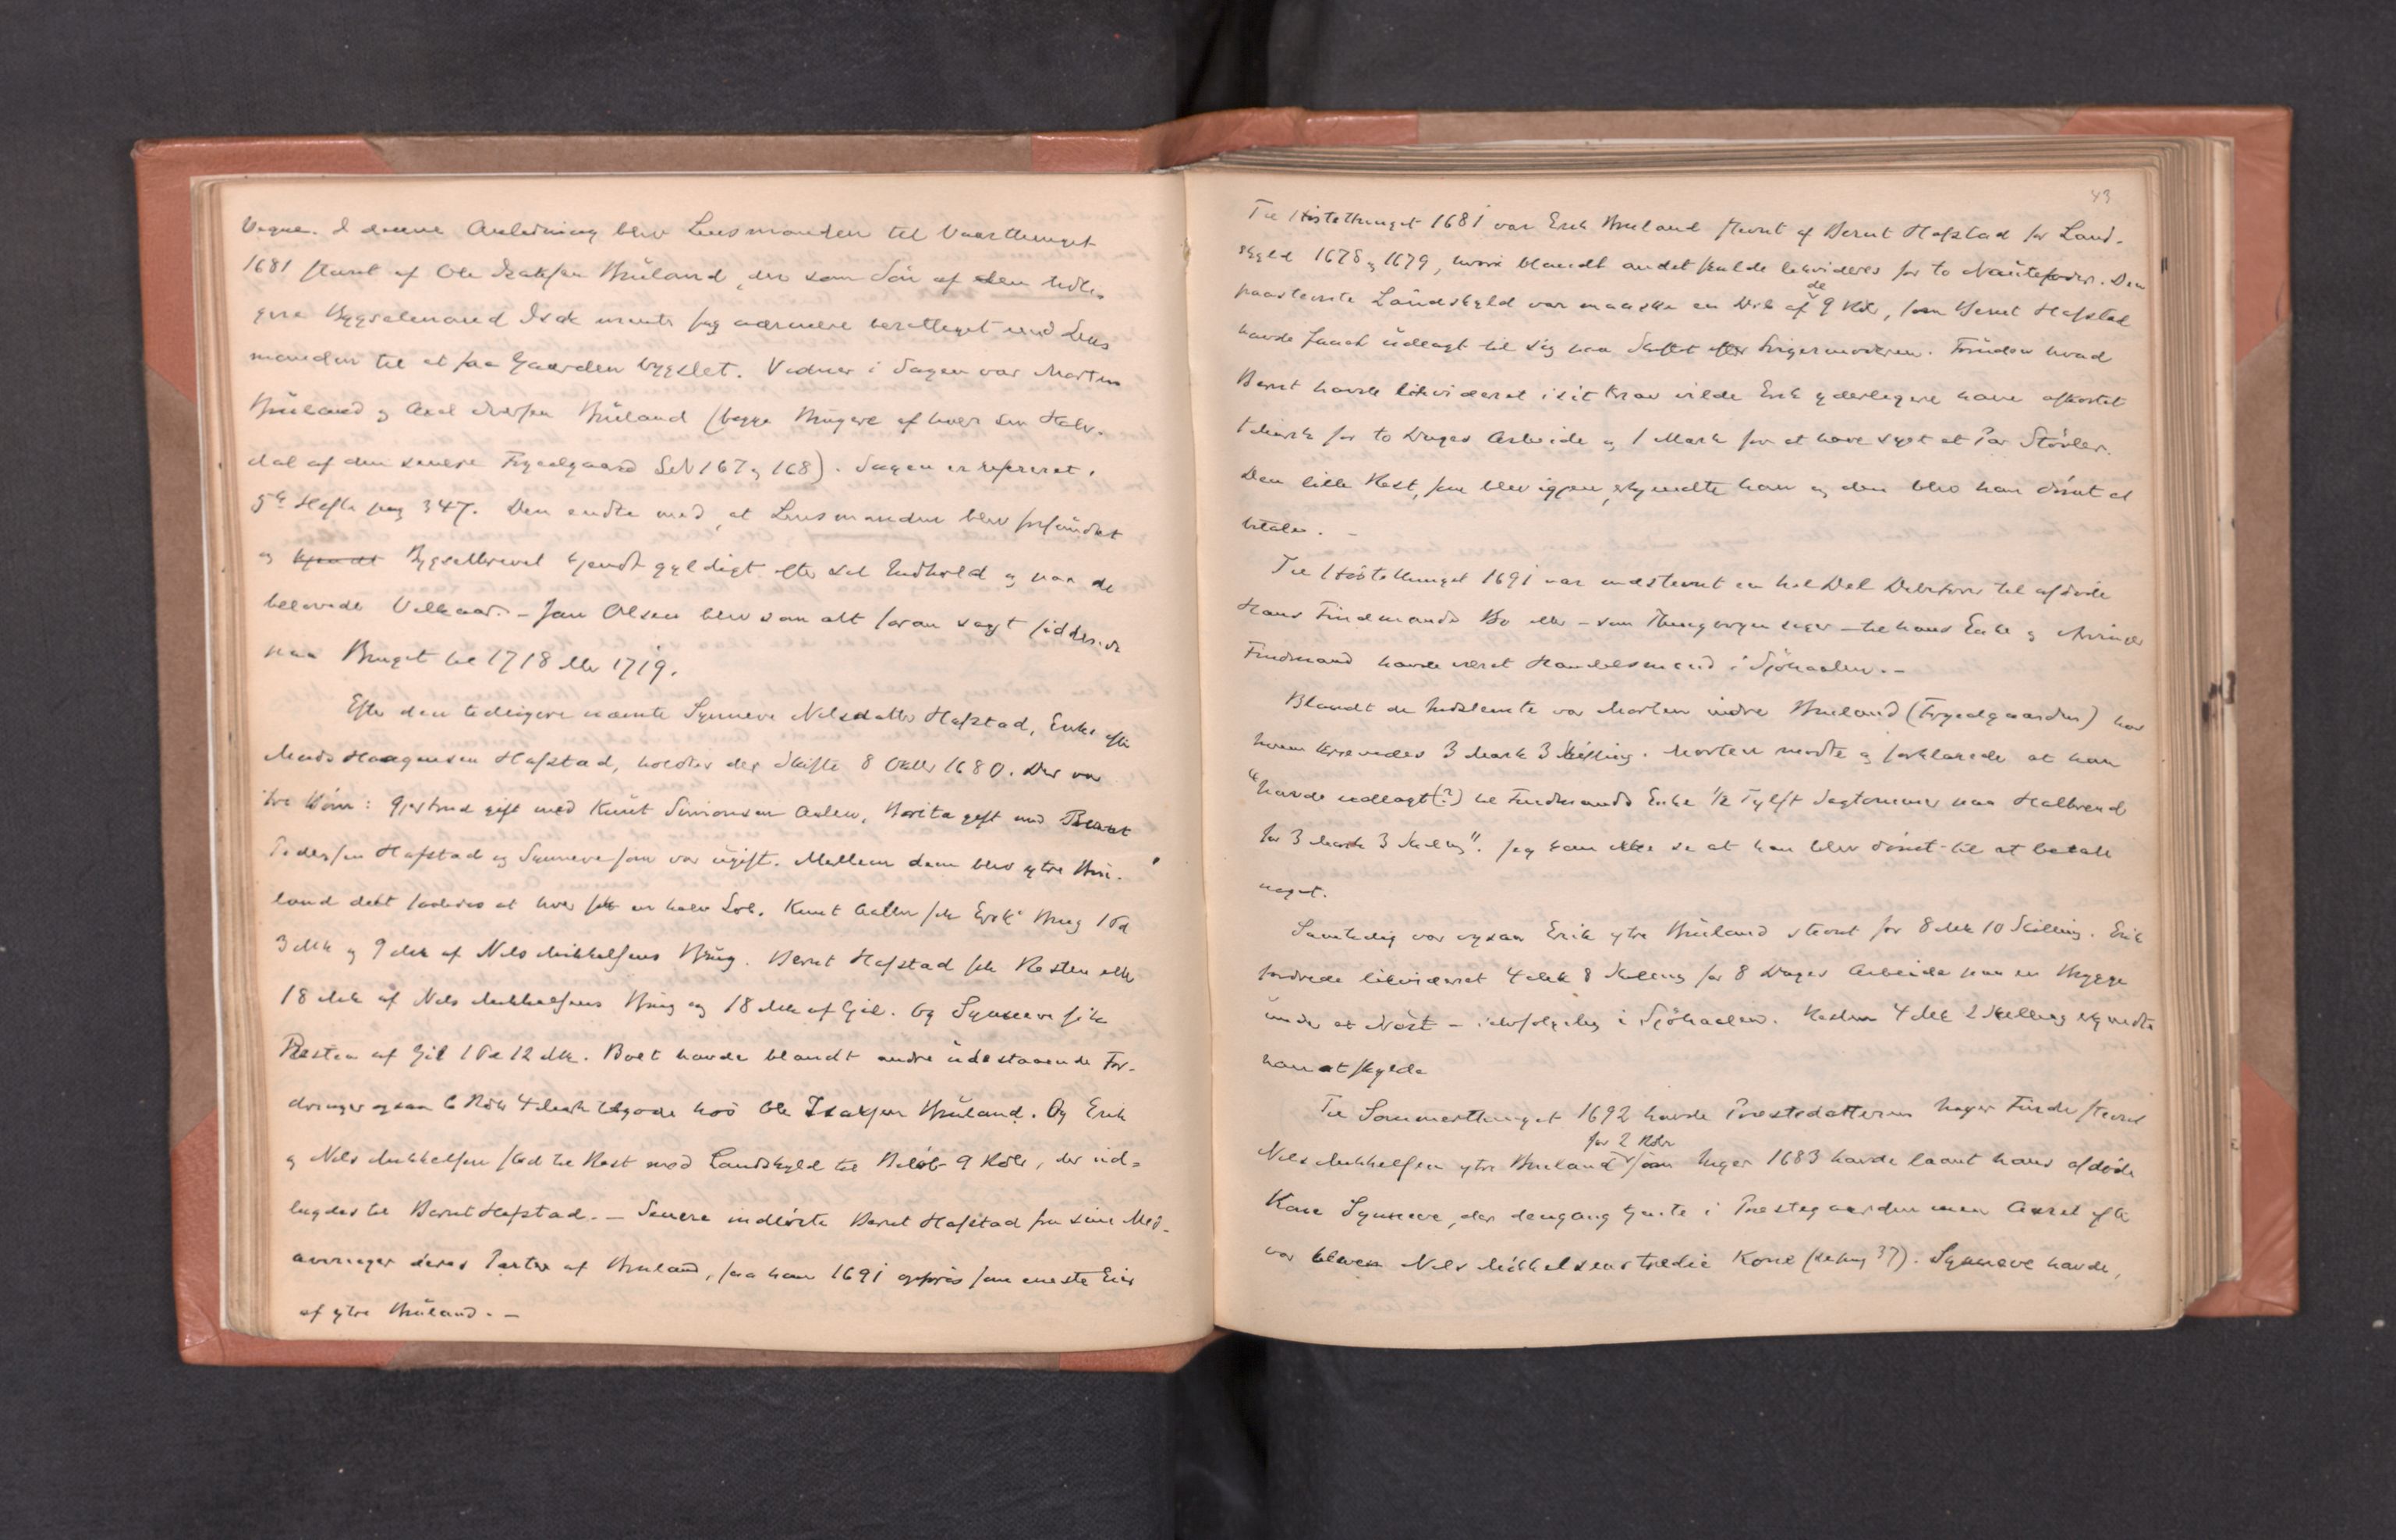 Vegne. I denne Anledning blev Lensmanden til Vaarthinget
1681 stævnt af Ole Isaksen Bruland, der som Søn af den tidli-
gere Bygselmand Isak mente sig nærmere berettiget end Lens
manden til at faa Gaarden bygslet. Vidner i Sagen var Morten
Bruland og Axel Iversen Bruland (begge Brugere af hver sin Halv-
del af den senere Fryedlgaard LN 167 og 168). Sagen er refereret i
5te Hefte pag 347. Den endte med, at Lensmanden blev frifundet
og kjendt Bygselbrevet kjendt gyldigt efter sit Indhold og paa de
belovede Vilkaar. - Jan Olsen blev som alt foran sagt siddende
paa Bruget til 1718 eller 1719.
Efter den tidligere nævnte Synneve Nilsdatter Hafstad, Enke efter
Mads Haagensen Hafstad, holdtes der Skifte 8 Oktbr 1680. Der var
tre Børn: Gjertrud gift med Knut Simonsen Aalen, Marita gift med Bernt
Pedersen Hafstad og Synneve som var ugift. Mellem dem blev ytre Bru-
land delt saaledes at hver fik en halv Løb. Knut Aalen fik Eriks Brug 1 Pd
3 Mk og 9 Mk af Nils Mikkelsens Brug. Bernt Hafstad fik Resten eller
18 Mk af Nils Mikkelsens Brug og 18 Mk af Gil. Og Synneve fik
Resten af Gil 1 Pd 12 Mk. Boet havde blandt andre udestaaende For-
dringer ogsaa 6 Rdlr 4 Mark tilgode hos Ole Isaksen Bruland. Og Erik
og Nils Mikkelsen stod til Rest med Landskyld til Beløb 9 Rdlr, der ud-
lagdes til Bernt Hafstad. - Senere indløste Bernt Hafstad fra sine Med-
arvinger deres Parter af Bruland, saa han 1691 opføres som eneste Eier
af ytre Bruland. -
43
Til Høstethinget 1681 var Erik Bruland stevnt af Bernt Hafstad for Land-
skyld 1678 og 1679, hvori blandt andet skulde likvideres for to Nautefoder. Den
paastevnte Landskyld var maaske en Del af de 9 Rdlr, som Bernt Hafstad
havde faaet udlagt til sig paa Skiftet efter Svigermoderen. Foruden hvad
Bernt havde likvideret i sit Krav vilde Erik yderligere have afkortet
1 Mark for to Dages Arbeide og 1 Mark for at have syet et Par Støvler.
Den lille Rest, som blev igjen, erkjendte han og den blev han dømt at
betale. -
Til Høstethinget 1691 var indstevnt en hel Del Debitorer til afdøde
Hans Findmands Bo eller - som Thingbogen siger - til hans Enke og Arvinger
Findmand havde været Handelsmand i Sjøhaalen. -
Blandt de Indstevnte var Morten indre Bruland (Fryedlgaarden) hos
hvem krævedes 3 Mark 3 Skilling. Morten mødte og forklarede at han
"havde udlagt(?) til Findmands Enke 1/2 Tylft Sagtømmer paa Halbrend
for 3 Mark 3 Skilling". Jeg kan ikke se at han blev dømt til at betale
noget.
Samtidig var ogsaa Erik ytre Bruland stevnt for 8 Mk 10 Skilling. Erik
fordrede likvideret 4 Mk 8 Skilling for 8 Dages Arbeide paa en Brygge
under et Nøst - selvfølgelig i Sjøhaalen. Resten 4 Mk 2 Skilling erkjendte
han at skylde
Til Sommerthinget 1692 havde Prestedatteren Inger Finde stevnt
Nils Mikkelsen ytre Bruland for 2 Rdlr som Inger 1683 havde laant hans afdøde
Kone Synneve, der dengang tjente i Prestegaarden men Aaret efter
var bleven Nils Mikkelsens tredie Kone (se pag 37). Synneve havde,